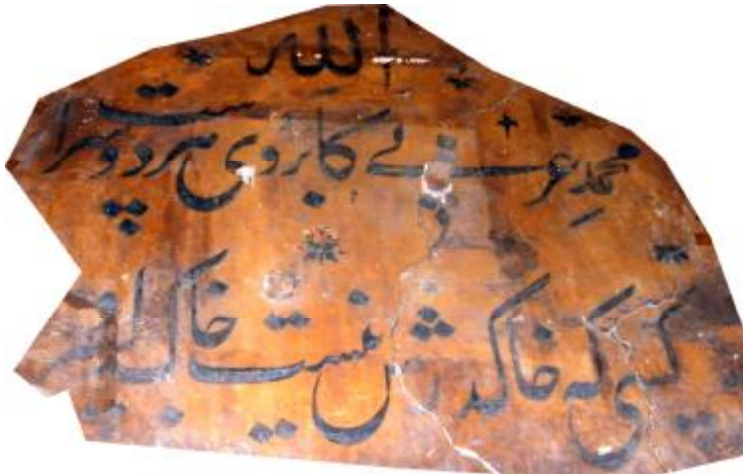 الله
محمد عربی کابروی ہر دو سراست
کسی کہ خاک درش نیست خاک بر سر او